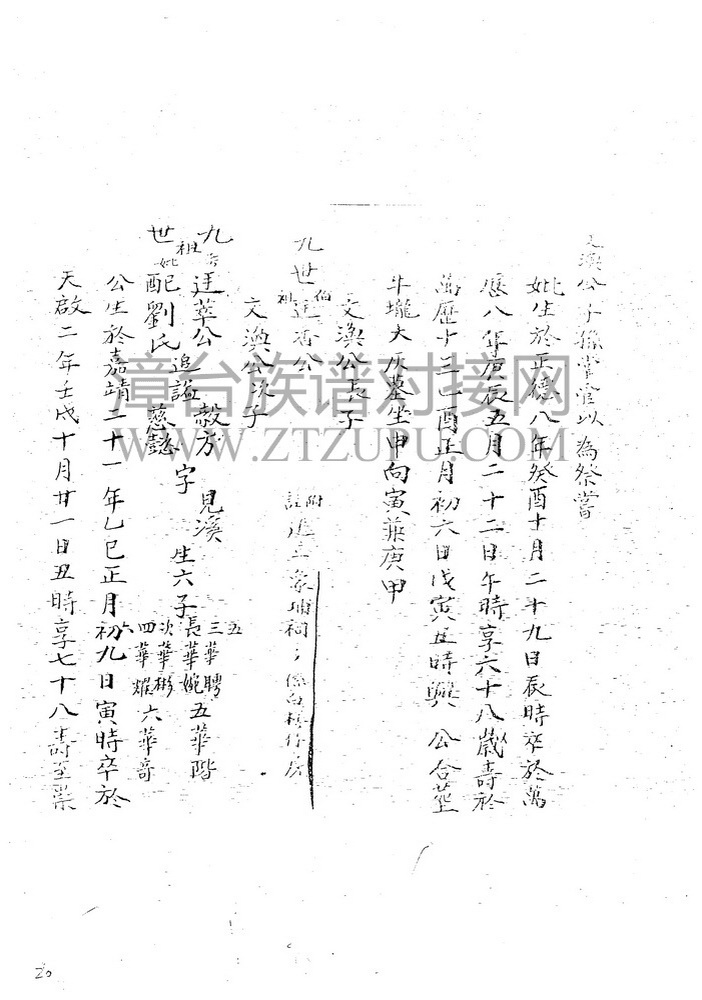 文渙公子孫掌管以為祭嘗
妣生於正德八年癸酉十月二十九日辰時卒於萬
歷八年庚辰五月二十二日午時享六十八歲壽於
萬歷十三乙酉正月初六日戊寅丑時興 公合葬
斗壠大灰墓坐申向寅兼庚甲
文渙公長子
九世伯祖廷 公 附註 進三 埔祠
文渙公次子
九世祖考廷華公追謚毅方字見溪生六子長華婉三華聘五華階
妣配劉氏 慈懿 次華彬四華耀六華奇
公生於嘉靖二十一年乙巳正月初九日寅時卒於
天啟二年壬戌十月廿一日丑時享七十八壽至崇
20
漳台族谱对接网
WWW.ZTZUPU.COM